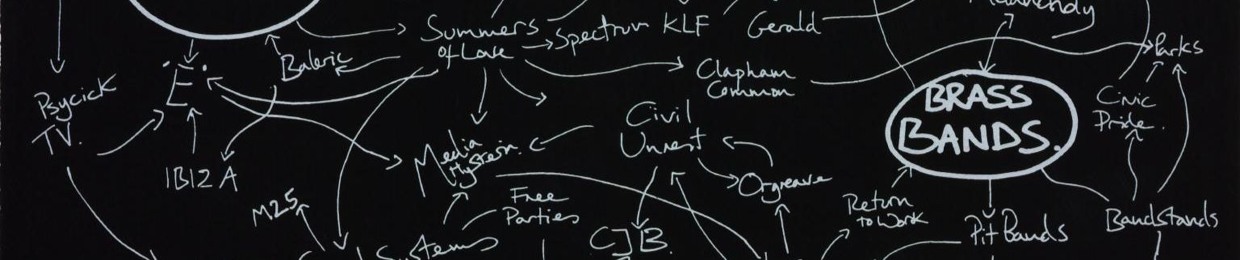 Summers
of Love
Spectrum
KLF
Gerald
Parks
Baleric
"E".
Clapham
Common
BRASS
BANDS.
Psycick
T.V.
Civil
Unrest
Civic
Pride.
IBIZA
Media
Hysteria.
Orgreave
M25
Free
Parties
Return
to Work
Systems
CJB.
Pit Bands
Bandstands